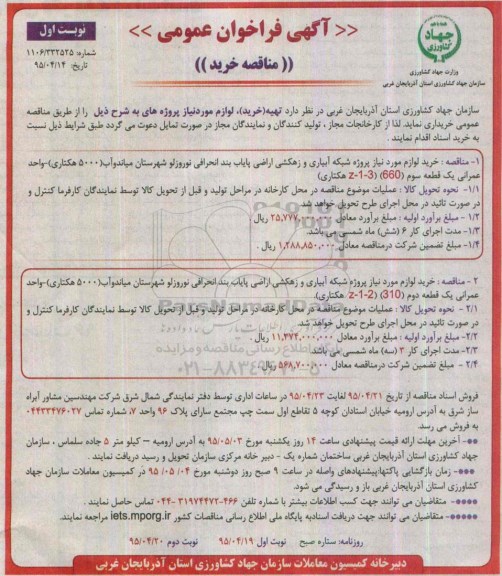 << آگهی فراخوان عمومی >>
نوبت اول
(( مناقصه خرید ))
شماره: ۱۱۰۶/۳۳۲۵۲۵
تاریخ: ۹۵/۰۴/۱۴
جهاد کشاورزی
وزارت جهاد کشاورزی
سازمان جهاد کشاورزی استان آذربایجان غربی
سازمان جهاد کشاورزی استان آذربایجان غربی در نظر دارد تهیه(خرید)، لوازم موردنیاز پروژه های به شرح ذیل را از طریق مناقصه
عمومی خریداری نماید. لذا از کارخانجات مجاز ، تولید کنندگان و نمایندگان مجاز در صورت تمایل دعوت می گردد طبق شرایط ذیل نسبت
به خرید اسناد اقدام نمایند
۱- مناقصه : خرید لوازم مورد نیاز پروژه شبکه آبیاری و زهکشی اراضی پایاب بند انحرافی نوروزلو شهرستان میاندوآب(۵۰۰۰ هکتاری)-واحد
عمرانی یک قطعه سوم (660) (z-1-3 هکتاری)
۱/۱- نحوه تحویل کالا : عملیات موضوع مناقصه در محل کارخانه در مراحل تولید و قبل از تحویل کالا توسط نمایندگان کارفرما کنترل و
در صورت تائید در محل اجرای طرح تحویل خواهد شد.
۱/۲ - مبلغ برآورد اولیه : مبلغ برآورد معادل ۲۵,۷۷۷,۰۰۰,۰۰۰ ریال .
۱/۳- مدت اجرای کار ۶ (شش) ماه شمسی می باشد.
۱/۴- مبلغ تضمین شرکت درمناقصه معادل ۱,۲۸۸,۸۵۰,۰۰۰ ریال .
۲ - مناقصه : خرید لوازم مورد نیاز پروژه شبکه آبیاری و زهکشی اراضی پایاب بند انحرافی نوروزلو شهرستان میاندوآب(۵۰۰۰ هکتاری)-واحد
عمرانی یک قطعه دوم (310) (z-1-2 هکتاری)
۲/۱ - نحوه تحویل کالا : عملیات موضوع مناقصه در محل کارخانه در مراحل تولید و قبل از تحویل کالا توسط نمایندگان کارفرما کنترل و
در صورت تائید در محل اجرای طرح تحویل خواهد شد.
۲/۲ - مبلغ برآورد اولیه : مبلغ برآورد معادل ۱۱,۳۷۴,۰۰۰,۰۰۰ ریال .
۲/۳- مدت اجرای کار ۳ (سه) ماه شمسی می باشد.
۲/۴ - مبلغ تضمین شرکت درمناقصه معادل ۵۶۸,۷۰۰,۰۰۰ ریال .
فروش اسناد مناقصه از تاریخ ۹۵/۰۴/۲۱ لغایت ۹۵/۰۴/۲۳ در ساعات اداری توسط دفتر نمایندگی شمال شرق شرکت مهندسین مشاور آبراه
ساز شرق به آدرس ارومیه خیابان استادان کوچه ۵ تقاطع اول سمت چپ مجتمع سارای پلاک ۹۶ واحد ۷، شماره تماس ۰۴۴۳۳۴۷۶۰۳۷
به فروش می رسد.
**- آخرین مهلت ارائه قیمت پیشنهادی ساعت ۱۴ روز یکشنبه مورخ ۹۵/۰۵/۰۳ به آدرس ارومیه – کیلو متر ۵ جاده سلماس ، سازمان
جهاد کشاورزی استان آذربایجان غربی ساختمان شماره یک - دبیر خانه مرکزی سازمان تحویل و رسید دریافت نمایند .
***- زمان بازگشایی پاکتها/پیشنهادهای واصله در ساعت ۹ صبح روز دوشنبه مورخ ۰۴/ ۰۵/ ۹۵ در کمیسیون معاملات سازمان جهاد
کشاورزی استان آذربایجان غربی باز و رسیدگی می شود.
****- متقاضیان می توانند جهت کسب اطلاعات بیشتر با شماره تلفن ۴۶۶-۳۱۹۷۴۴۷۲-۰۴۴ تماس حاصل نمایند .
*****- متقاضیان می توانند جهت دریافت اسنادبه پایگاه ملی اطلاع رسانی مناقصات کشور iets.mporg.ir مراجعه نمایند.
روزنامه: ستاره صبح نوبت اول ۹۵/۰۴/۱۹ نوبت دوم ۹۵/۰۴/۲۰
دبیرخانه کمیسیون معاملات سازمان جهاد کشاورزی استان آذربایجان غربی